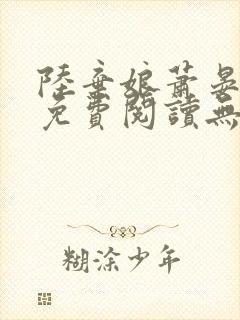 陸棄娘蕭晏
免費閱讀無
糊涂少年